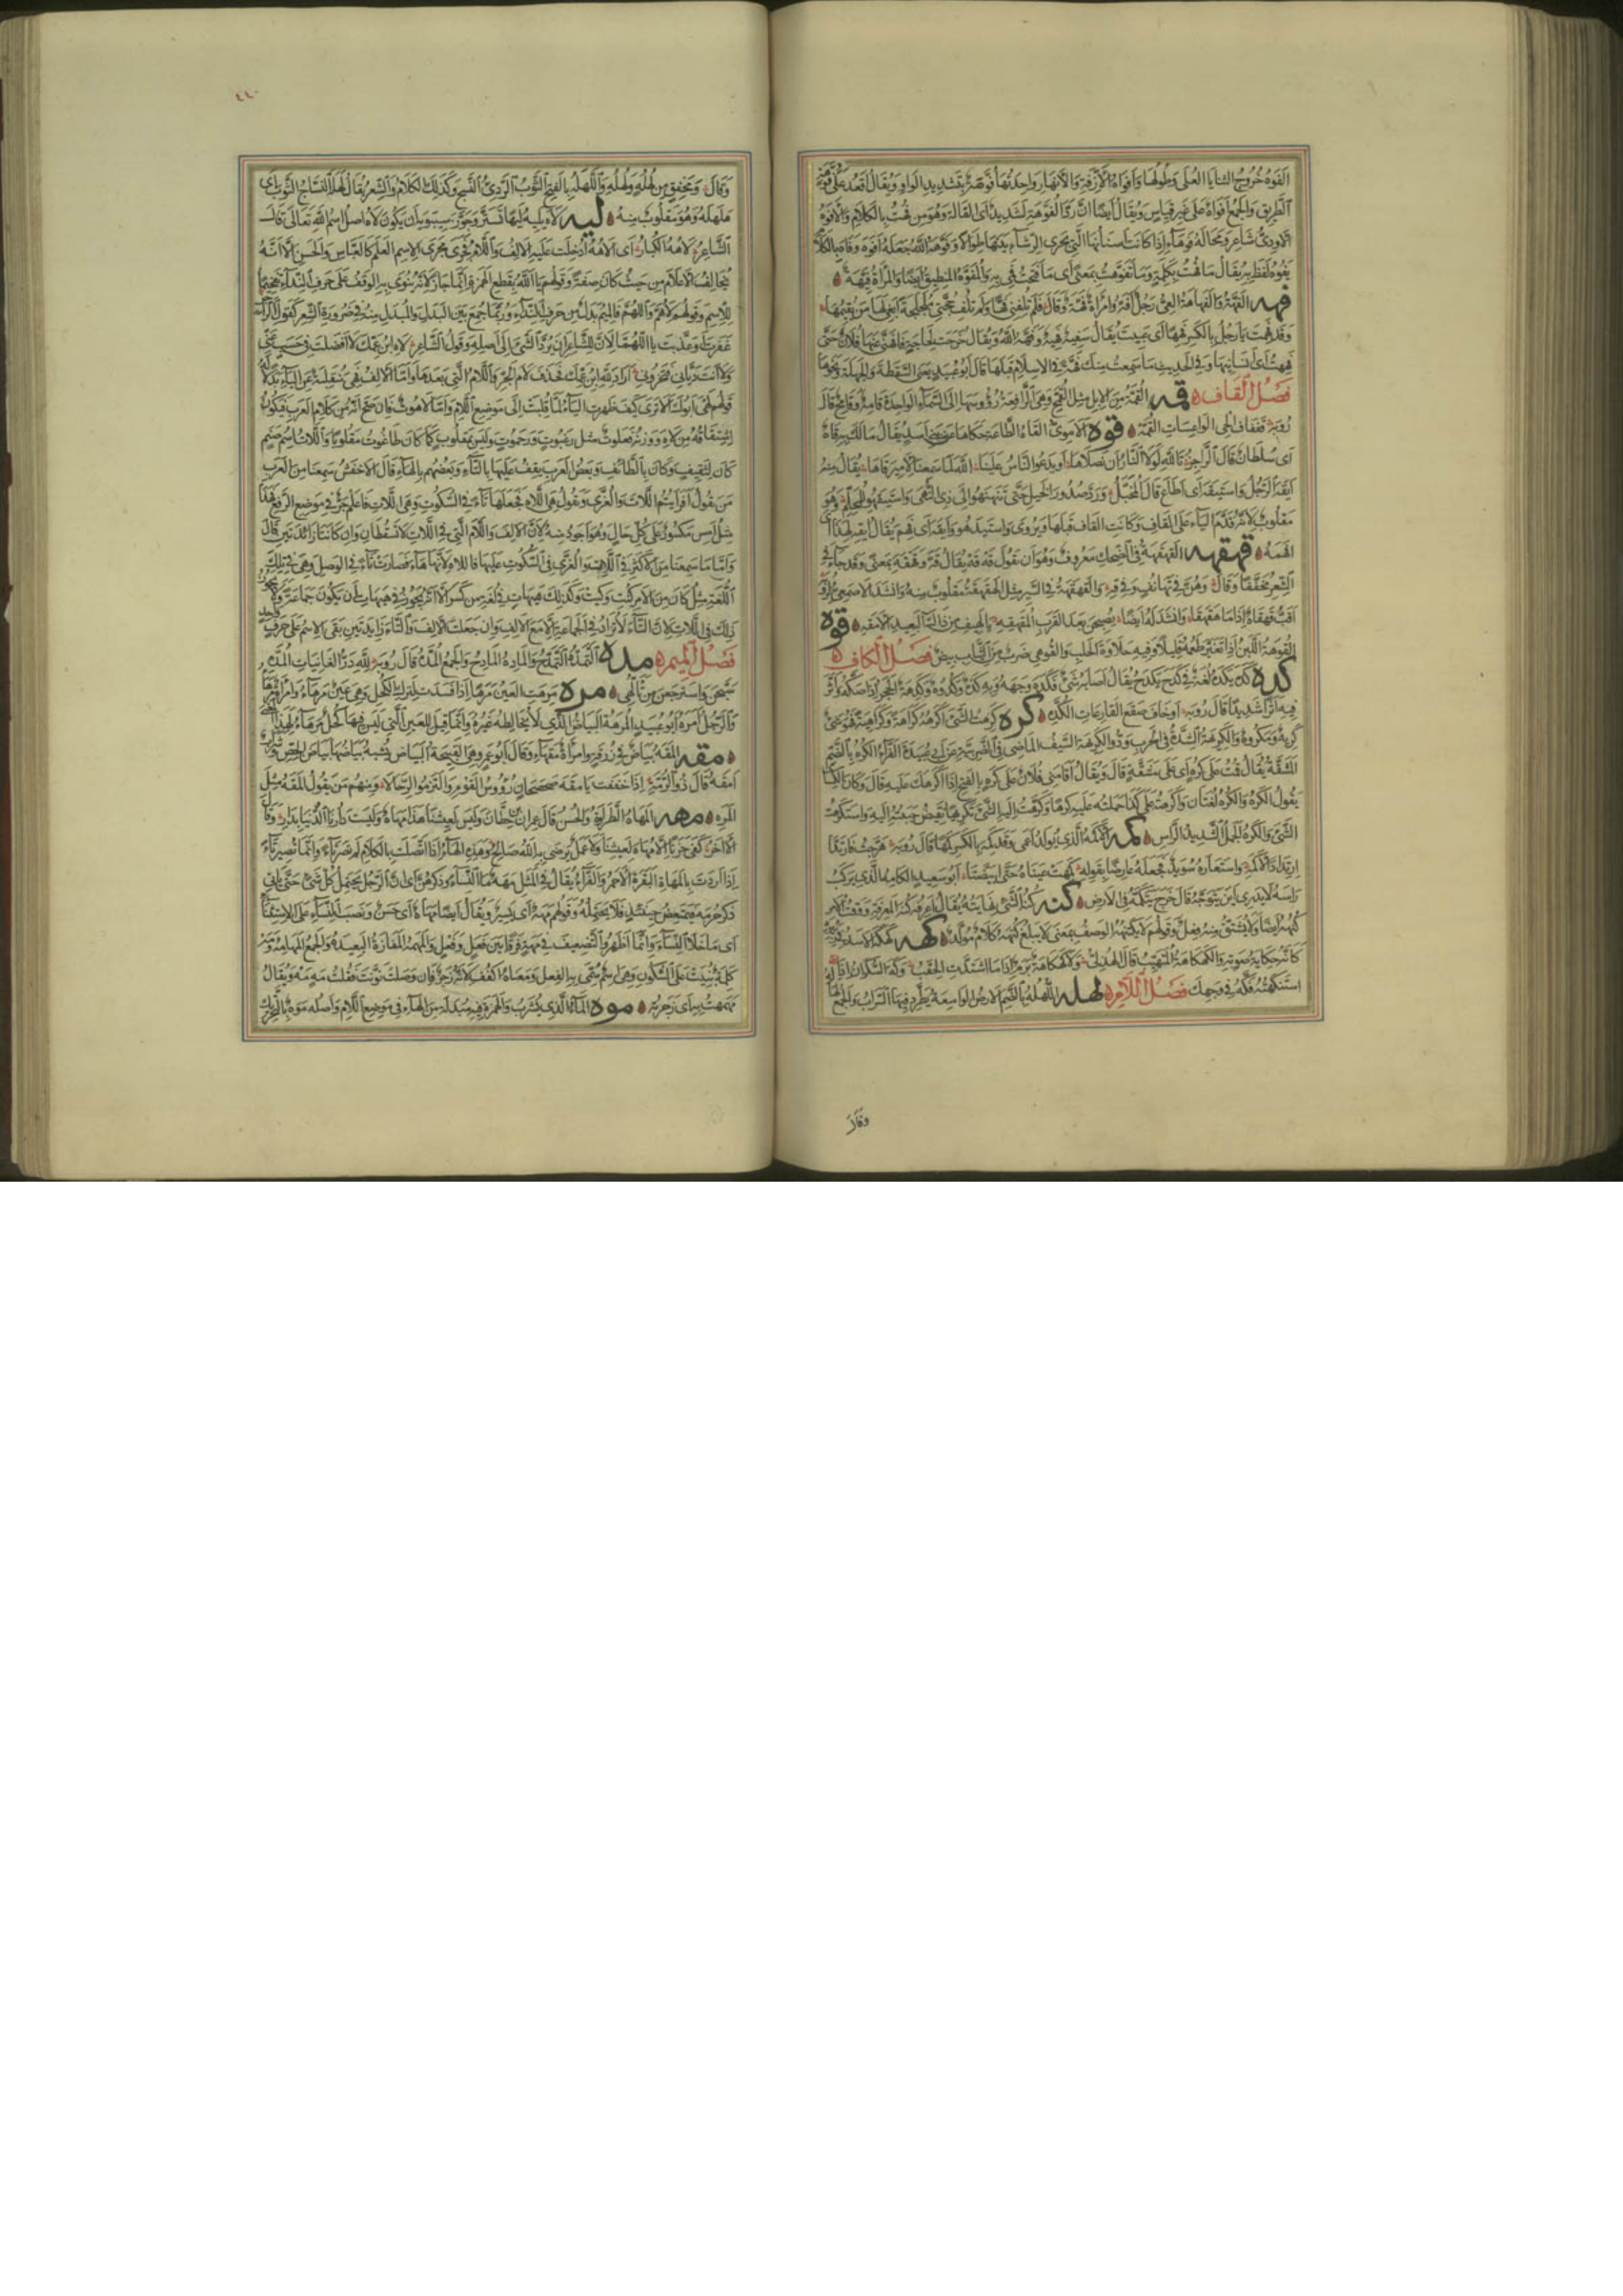 الفوه خروج الثنايا العلى وطولها وافواه الازقة والانهار واحدتها فوهة بتشديد الواو ويقال اقعد على فوهة
الطريق والجمع افواه على غير قياس ويقال ايضا ان رد الفوهة لشديد اى القالة وهو من فهت بالكلام والافوه
الاودى شاعر ومحالة فوهاء اذا كانت اسنانها التى يجرى الرشاء بينها طوالا وفوهه الله جعله افوه وفاه بالكلام
يفوه لفظ به يقال ما فهت بكلمة وما تفوهت بمعنى اى ما فتحت فمى به والمفوه المنطيق ايضا والمراة فيهة
فهه الفهة والفهاهة العى رجل فه وامراة فهة وقال فلم تلفنى فها ولم تلف حجتى ملجلجة ابغى لها من يقيمها
وقد فهت يا رجل بالكسر فهها اى عييت يقال سفيه فهيه وفهه الله ويقال خرجت لحاجة فافهنى عنها فلان حتى
فههت اى انسانيها وفى الحديث ما سمعت منك فهة فى الاسلام قبلها قال ابو عبيد يعنى السقطة والجهلة ونحوها
فصل القاف قمه القمه من الابل مثل القمح وهى الرافعة رؤوسها الى السماء الواحدة قامه وقامح قال
رؤبة قفقاف الحى الواعسات القمه قوه الاموى القاه الطاعة حكاها عن بنى اسد يقال مالك عليه قاه
اى سلطان قال الراجز تالله لولا النار ان نصلاها او يدعو الناس علينا الله لما سمعنا لامير قاها يقال منه
ايقه الرجل واستيقه اى اطاع قال المخبل وردوا صدور الخيل حتى تنهنهوا الى ذى النهى واستيقهوا للمحلم وهو
مقلوب لانه قدم الياء على القاف وكانت القاف قبلها ويروى واستيدهوا وايقه اى فهم يقال ايقه لهذا اى
افهمه قهقه القهقهة فى الضحك معروف وهو ان تقول قه قه يقال قه وقهقه بمعنى وقد جاء فى
الشعر مخففا وقال وهن فى تهانف وفى قه والقهقهة فى السير مثل الحقحقة مقلوب منه وانشد الاصمعى لرؤبة
اقب قهقاه اذا ما هقهقا وانشد له ايضا يصبحن بعد القرب المقهقه بالهيف من ذاك البعيد الامقه قوه
القوهة اللبن اذا تغير طعمه قليلا وفيه حلاوة الحلب والقوهى ضرب من الثياب بيض فصل الكاف
كده كده يكده لغة فى كدح يكدح يقال اصابه شىء فكده وجهه وبه كده وكدوه وكدهه الحجر اذا صكه واثر
فيه اثرا شديدا قال رؤبة او خاف صقع القارعات الكده كره كرهت الشىء اكرهه كراهة وكراهية فهو شىء
كريه ومكروه والكريهة الشدة فى الحرب وذو الكريهة السيف الماضى فى الضريبة عن ابى عبيدة الفراء الكره بالضم
المشقة يقال قمت على كره اى على مشقة قال ويقال اقامنى فلان على كره بالفتح اذا اكرهك عليه قال وكان الكسائى
يقول الكره والكره لغتان واكرهته على كذا حملته عليه كرها وكرهت اليه الشىء تكريها نقيض حببته اليه واستكرهت
الشىء والكره الجمل الشديد الراس كمه الاكمه الذى يولد اعمى وقد كمه بالكسر كمها قال رؤبة هرجت فارتد
ارتداد الاكمه واستعاره سويد فجعله عارضا بقوله كمهت عيناه حتى ابيضتا ابو سعيد الكامه الذى يركب
راسه لا يدرى اين يتوجه قال خرج يتكمه فى الارض كنه كنه الشىء نهايته يقال اعرفه كنه المعرفة ووقت الامر
كنهه ايضا ولا يشتق منه فعل وقولهم لا يكتنهه الوصف بمعنى لا يبلغ كنهه كلام مولد كهه كهكه الاسد فى زئيره
كانه حكاية صوته والكهكاهة المتهيب قال الهذلى ولا كهكاهة برم اذا ما اشتدت الحقب وكه السكران اذا
استنكهته فكه فى وجهك فصل اللام لهله اللهله بالضم الارض الواسعة يطرد فيها السراب والجمع لهاله
وقال
وقال ومخفق من لهله ولهله واللهله بالفتح الثوب الردىء النسج وكذلك الكلام والشعر يقال لهله النساج الثوب اى
هلهله وهو مقلوب منه ليه لاه يليه ليها تستر وجوز سيبويه ان يكون لاه اصل اسم الله تعالى قال
الشاعر لاهه الكبار اى الاهه ادخلت عليه الالف واللام فجرى مجرى الاسم العلم كالعباس والحسن الا انه
يخالف الاعلام من حيث كان صفة وقولهم يا الله بقطع الهمزة انما جاز لانه ينوى به الوقف على حرف النداء تفخيما
للاسم وقولهم لاهم واللهم فالميم بدل من حرف النداء وربما جمع بين البدل والمبدل منه فى ضرورة الشعر كقول الراجز
غفرت او عذبت يا اللهما لان للشاعر ان يرد الشىء الى اصله وقول الشاعر لاه ابن عمك لا افضلت فى حسب عنى
ولا انت ديانى فتخزونى اراد لله ابن عمك فحذف لام الجر واللام التى بعدها واما الالف فهى منقلبة عن الياء بدلالة
قولهم لهى ابوك الا ترى كيف ظهرت الياء لما قلبت الى موضع اللام واما لاهوت فان صح انه من كلام العرب فيكون
اشتقاقه من لاه ووزنه فعلوت مثل رغبوت ورحموت وليس بمقلوب كما كان طاغوت مقلوبا واللات اسم صنم
كان لثقيف وكان بالطائف وبعض العرب يقف عليها بالتاء وبعضهم بالهاء قال الاخفش سمعنا من العرب
من يقول افرايتم اللات والعزى ويقول هى اللاه فجعلها تاء فى السكوت وهى اللات فاعلم جر فى موضع الرفع فهذا
مثل امس مكسور على كل حال وهو اجود منه لان الالف واللام التى فى اللات لا تسقطان وان كانتا زائدتين قال
واما ما سمعنا من الاكثر فى اللات والعزى فى السكوت عليها فاللاه لانها هاء فصارت تاء فى الوصل وهى فى تلك
اللغة مثل كان من الامر كيت وكيت وكذلك هيهات فى لغة من كسر الا انه يجوز فى هيهات ان يكون جماعة ولا يجوز
ذلك فى اللات لان التاء لا تزاد فى الجماعة الا مع الالف وان جعلت الالف والتاء زايدتين بقى الاسم على حرف واحد
فصل الميم مده التمده التمدح والماده المادح والجمع المده قال رؤبة لله در الغانيات المده
سبحن واسترجعن من تالهى مره مرهت العين مرها اذا فسدت لترك الكحل وهى عين مرهاء وامراة مرهاء
والرجل امره ابو عبيد المرهة البياض الذى لا يخالطه غيره وانما قيل للعين التى ليس فيها كحل مرهاء لهذا المعنى
مقه المقه بياض فى زرقة وامراة مقهاء وقال ابو عمرو هى القبيحة البياض يشبه بياضها بياض الجص
امقه قال ذو الرمة اذا خفقت بامقه صحصحان رؤوس القوم والتزموا الرحالا ومنهم من يقول المقه مثل
المره مهه المهاه الطراوة والحسن قال عمران بن حطان وليس لعيشنا هذا مهاه وليست دارنا الدنيا بدار وقال
الاخر كفى حزنا ان لا مهاه لعيشنا ولا عمل يرضى به الله صالح وهذه الهاء اذا اتصلت بالكلام لم تصر تاء وانما تصير تاء
اذا اردت بالمهاة البقرة الاحمر والفراء يقال فى المثل كل شىء مهه ما النساء وذكرهن اى ان الرجل يحتمل كل شىء حتى ياتى
ذكر حرمه فيمتعض حينئذ فلا يحتمله وقولهم مهه اى يسير ويقال ايضا مهاه اى حسن ونصب النساء على الاستثناء
اى ما خلا النساء وانما اظهروا التضعيف فى مهه فرقا بين فعل وفعل والمهمه المفازة البعيدة والجمع المهامه ومه
كلمة بنيت على السكون وهى اسم سمى به الفعل ومعناه اكفف لانه زجر فان وصلت نونت فقلت مه مه ويقال
مهمهت به اى زجرته موه الماء الذى يشرب والهمزة فيه مبدلة من الهاء فى موضع اللام واصله موه بالتحريك